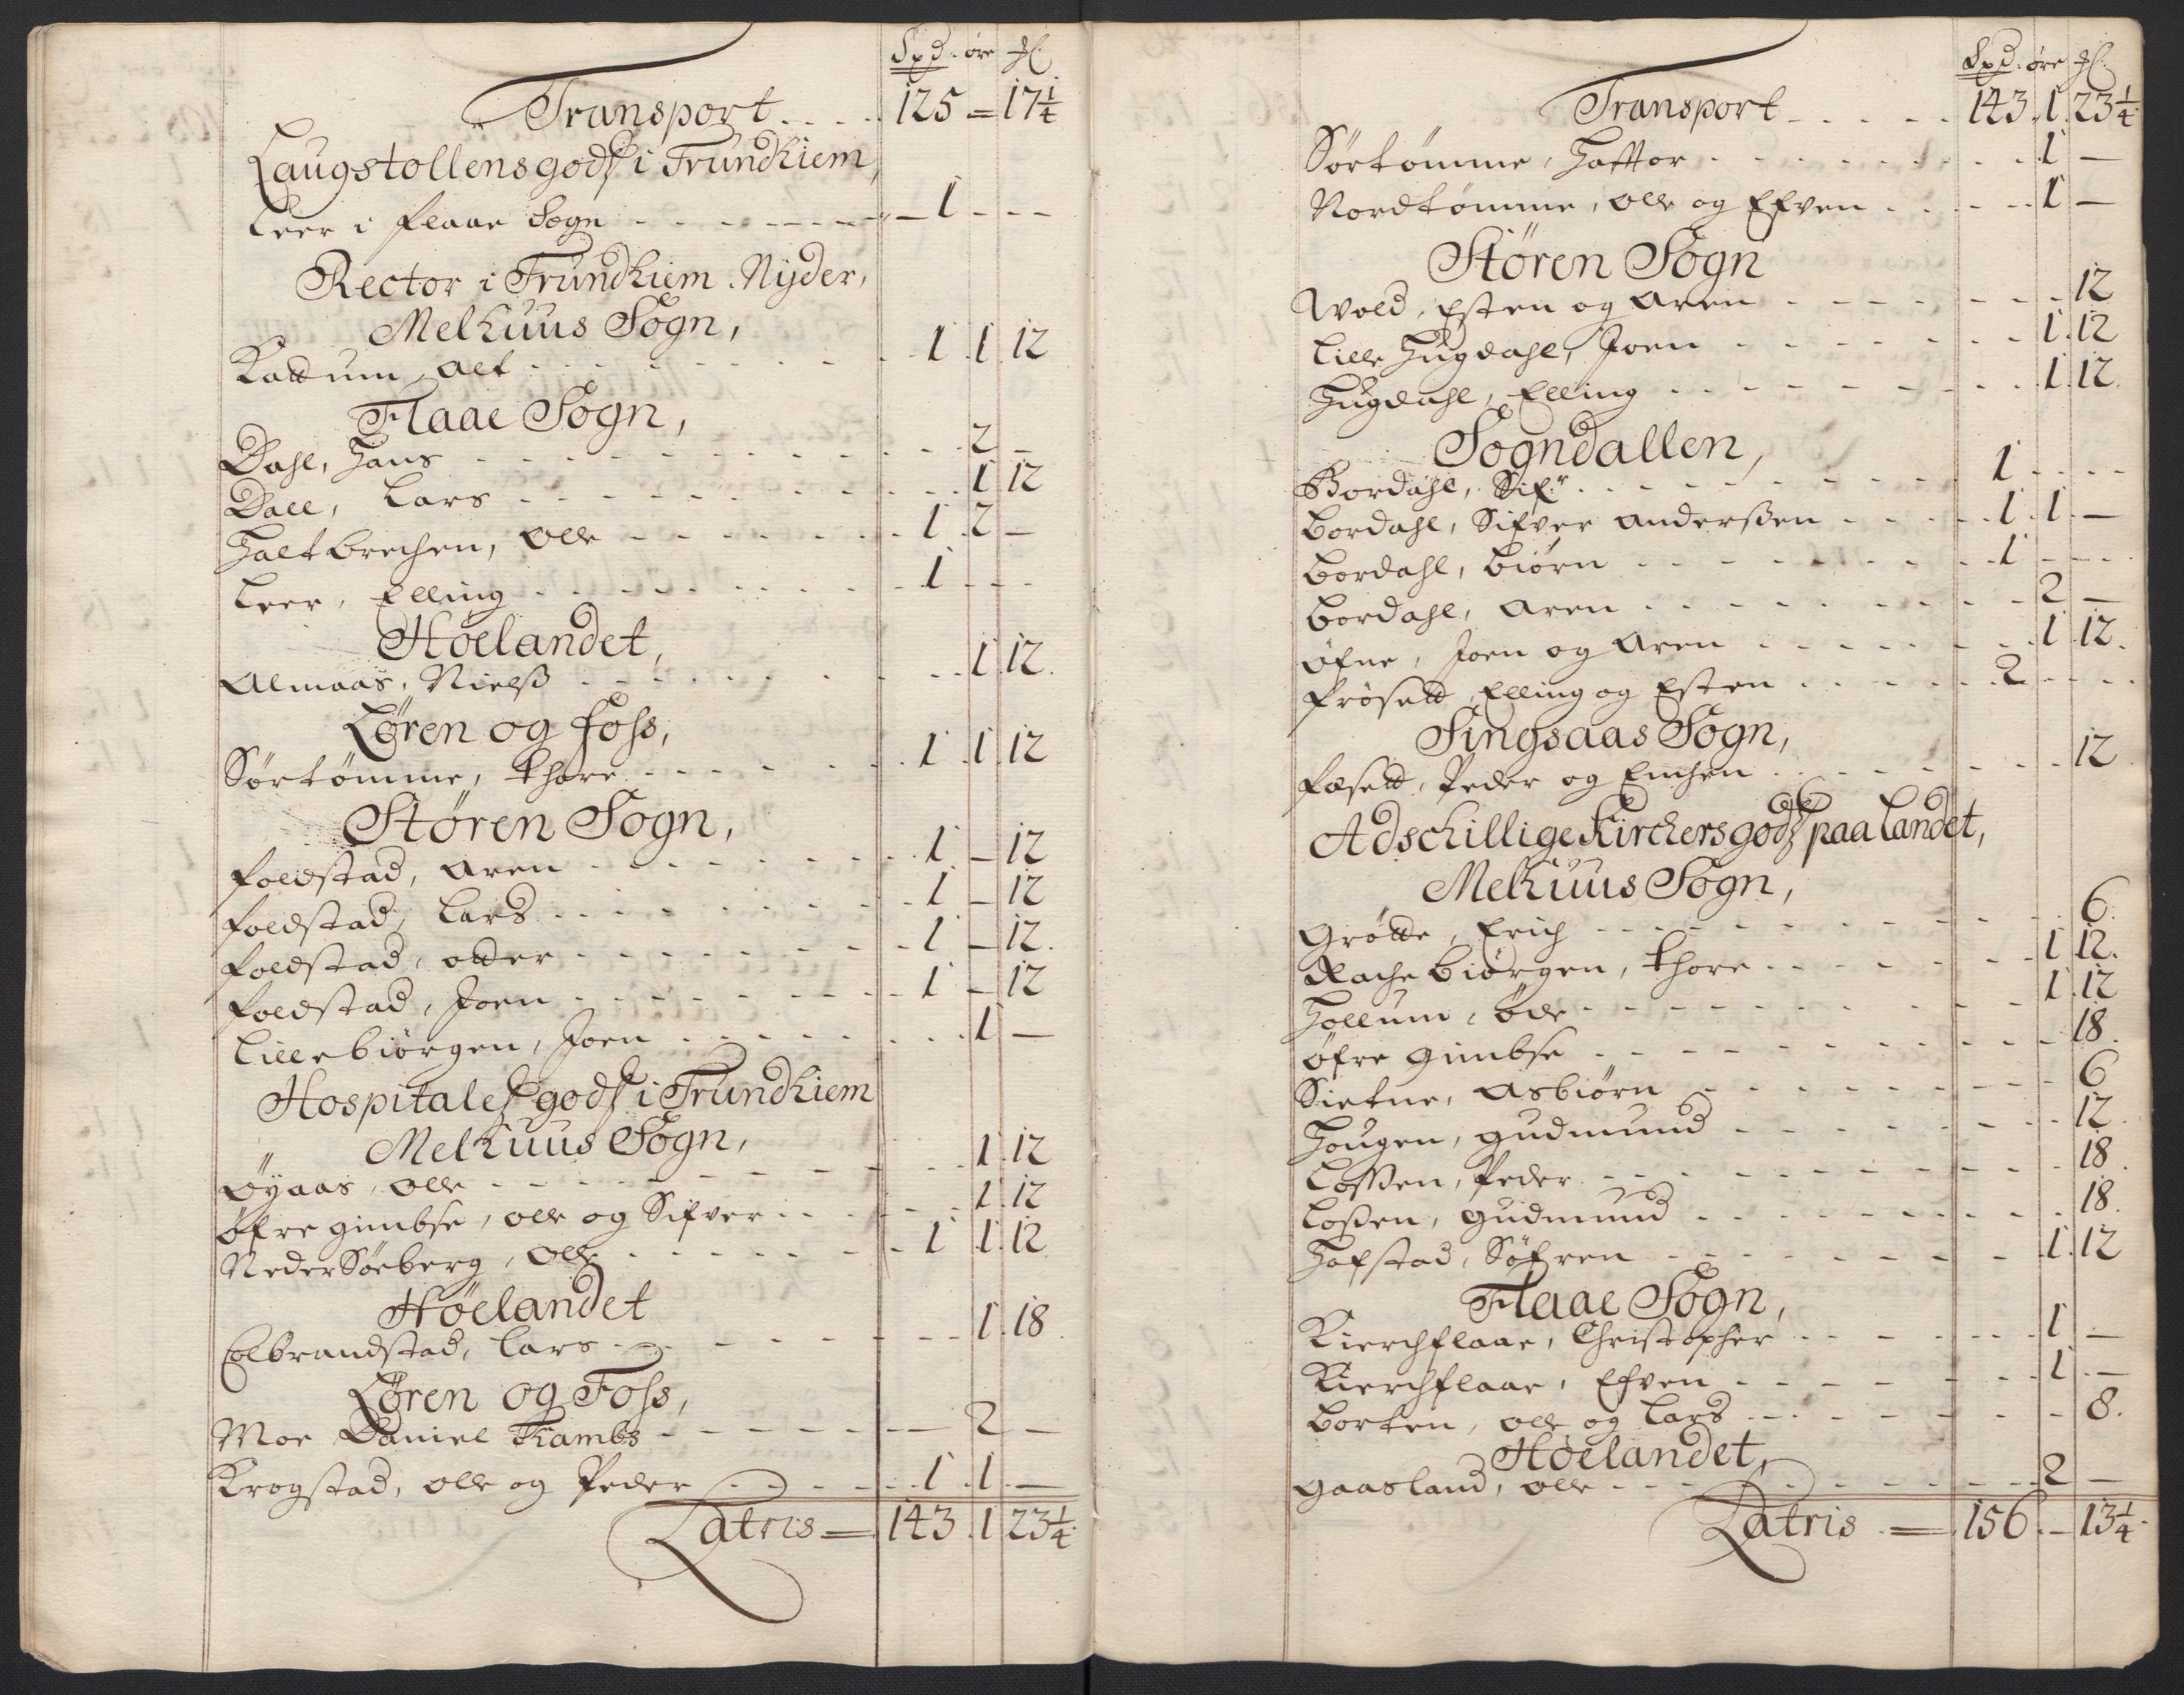 Spd. øre
Transport 125 = 17 1/4
Laugstollens godß i Trundhiem,
Leer i flaae Sogn 1 - -
Rector i Trundhiem Nyder,
Melhuus Sogn,
Kattum, Alf 1 1 12
Flaae Sogn,
Dahl, Hans 2 -
Dall, Lars 1 12
Haltbrechen, Olle 1 2 -
Leer, Elling 1 - -
Höelandet,
Almaas, Nielß 1 12
Lören og foss,
Sörtömme, Thore 1 1 12
Stören Sogn,
foldstad, Aren 1 - 12
foldstad, Lars 1 - 12
foldstad, otter 1 - 12
foldstad, Joen 1 - 12
Lillebiörgen, Joen 1 -
Hospitalets godß i Trundhiem
Melhuus Sogn,
Öyaas, Olle 1 12
öfre gimbse, olle og Sifver 1 12
Neder Söeberg, Olle 1 1 12
Höelandet
Colbrandstad, Lars 1 18
Lören og Foss,
Moe Daniel Kambs 2 -
Krogstad, olle og Peder 1 1 -
Latris = 143 1 23 1/4
Spd. øre
Transport 143 1 23 1/4
Sörtömme, Haftor 1 -
Nordtömme, olle og Efven 1 -
Stören Sogn
Wold, Esten og Aren 12
Lille Hugdahl, Joen 1 12
Hugdahl, Elling 1 12
Sogndallen,
Bordahl, Sifr 1 - -
Bordahl, Sifver Anderßen 1 1 -
Bordahl, Biörn 1 - -
Bordahl, Aren 2 -
öfne, Joen og Aren 1 12
frösett, Elling og Esten 2 - -
Singsaas Sogn,
fæsett, Peder og Enchen 12
Adschillige Kirchers godß paa Landet,
Melhuus Sogn,
Grötte, Erich 6
Rachebiörgen, Thore 1 12
Hollum, öde 1 12
öfre gimbse 18
Sietne, Asbiörn 6
Hougen, gudmund 12
Loßen, Peder 18
Loßen, gudmund 18
Hofstad, Söfren 1 12
Flaae Sogn,
Kierchflaae, Christopher 1 -
Kierchflaae, Efven 1 -
Borten, olle og Lars 8
Höelandet,
gaasland, olle 2 -
Latris = 156 - 13 1/4